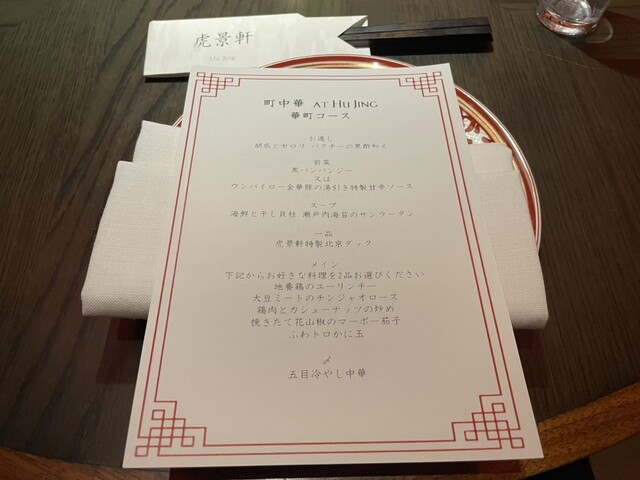 虎景軒
Hu Jing
町中華 AT HU JING
華町コース
お通し
胡瓜とセロリ パクチーの黒酢和え
前菜
黒バンバンジー
又は
ウンパイロー金華豚の湯引き特製甘辛ソース
スープ
海鮮と干し貝柱 瀬戸内海苔のサンラータン
一品
虎景軒特製北京ダック
メイン
下記からお好きな料理を2品お選びください
地養鶏のユーリンチー
大豆ミートのチンジャオロース
鶏肉とカシューナッツの炒め
挽きたて花山椒のマーボー茄子
ふわトロかに玉
〆
五目冷やし中華